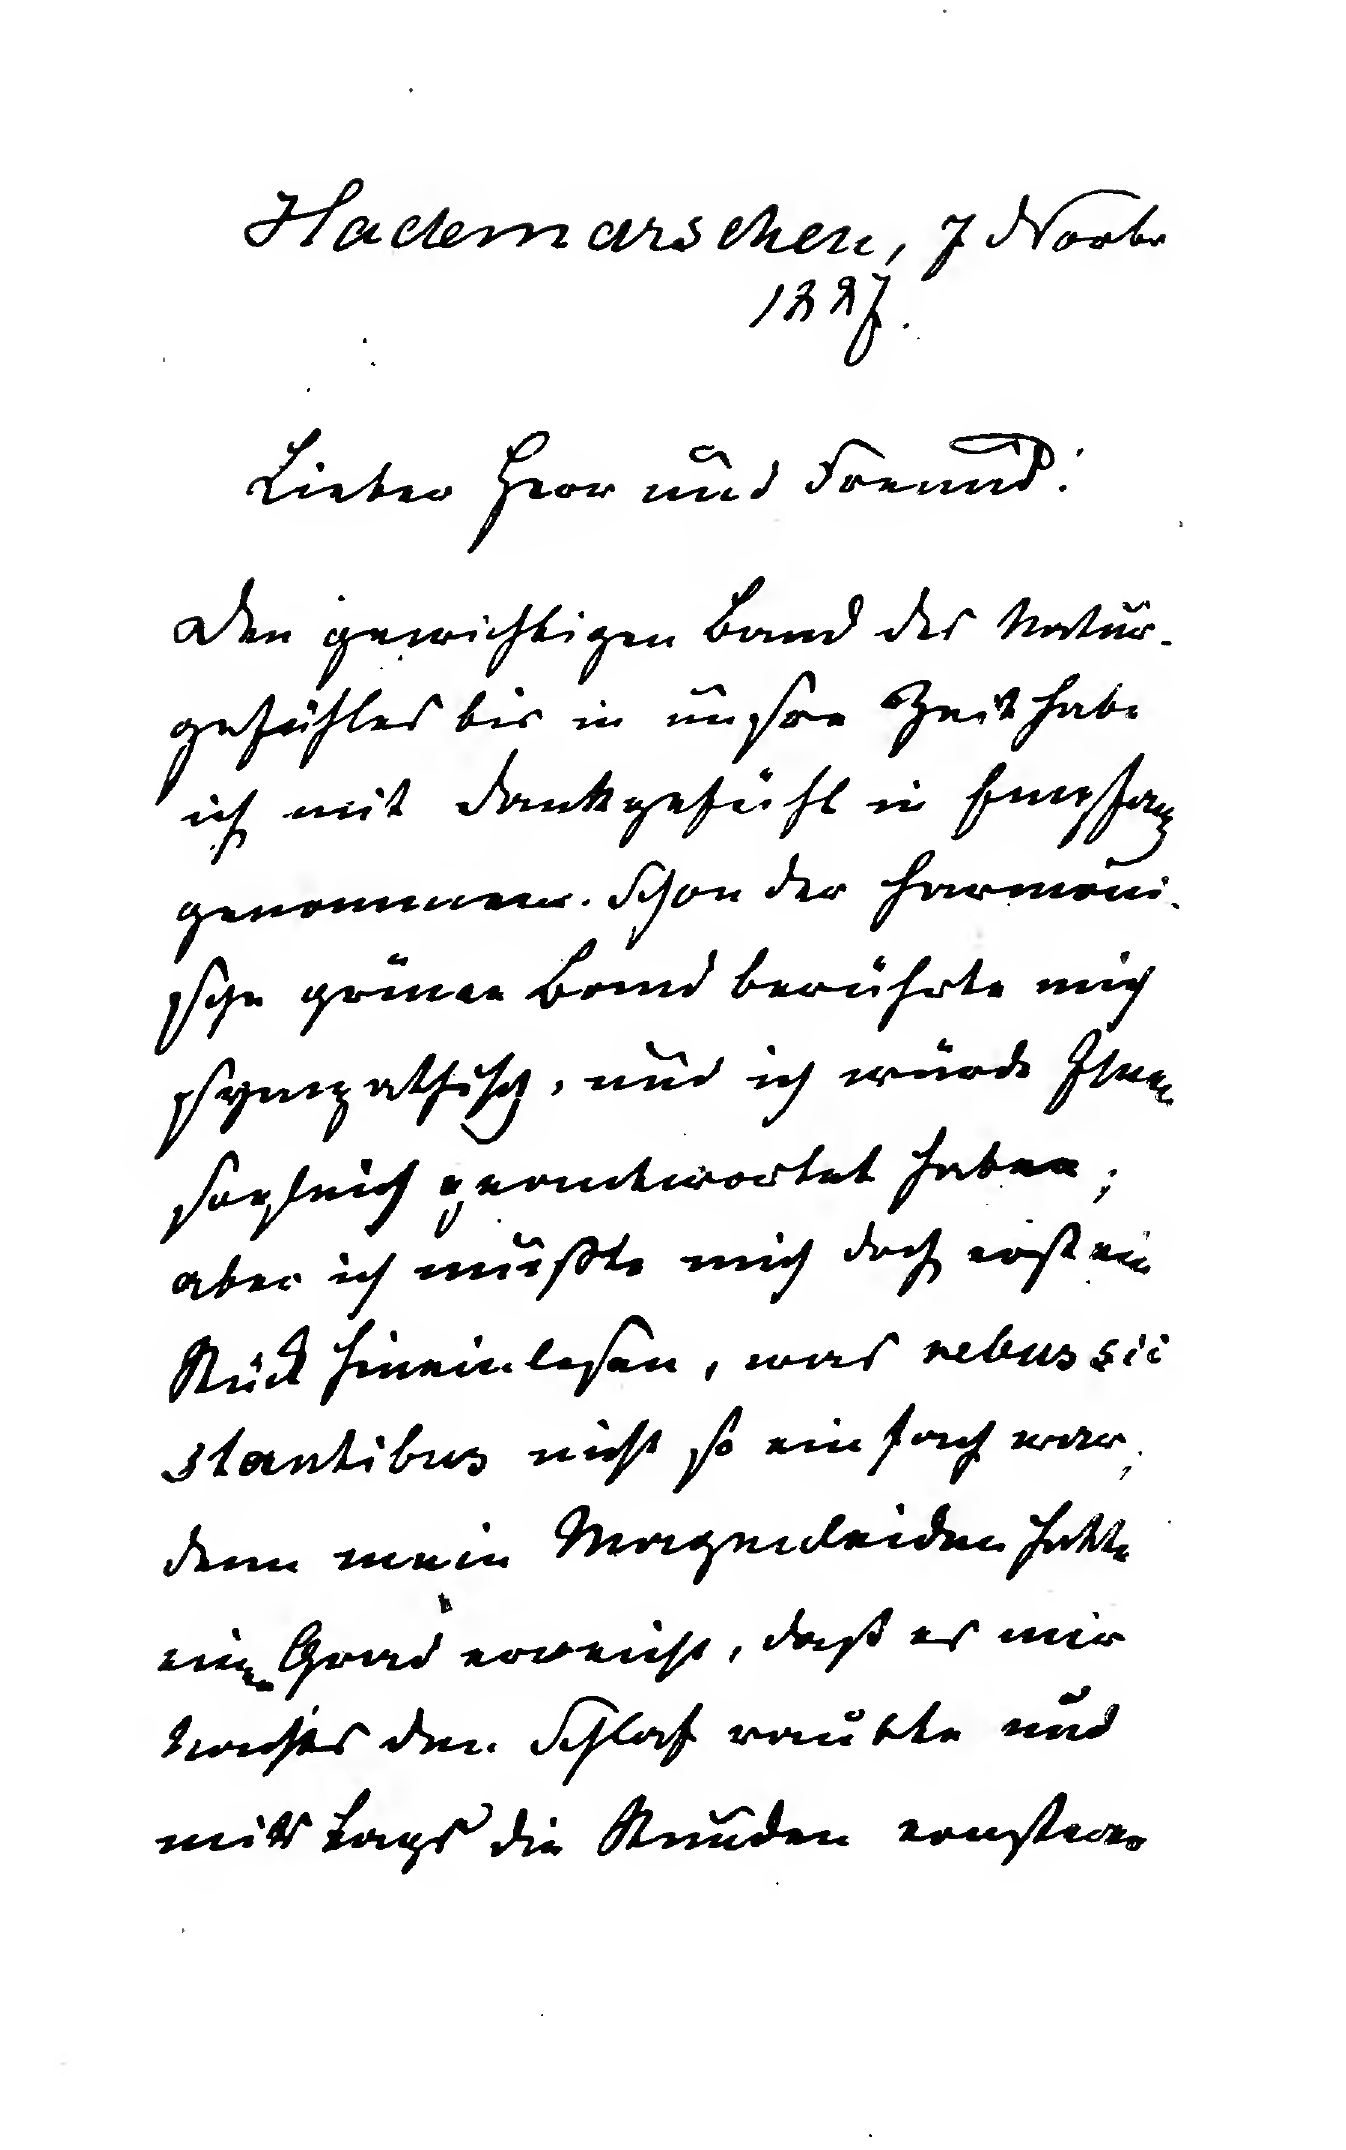 Hademarschen, 7 Novbr
1887.
Lieber Herr und Freund!
Den gewichtigen Band des Natur-
gefühles bis in unsre Zeit habe
ich mit Dankgefühl in Empfang
genommen. Schon der harmoni-
sche grüne Band berührte mich
sympathisch, und ich würde Ihnen
sogleich geantwortet haben;
aber ich mußte mich doch erst ein
Stück hineinlesen, was rebus sic
stantibus nicht so einfach war,
denn mein Magenleiden hatte
einen Grad erreicht, daß es mir
Nachts den Schlaf raubte und
mir Tags die Stunden ernsterer